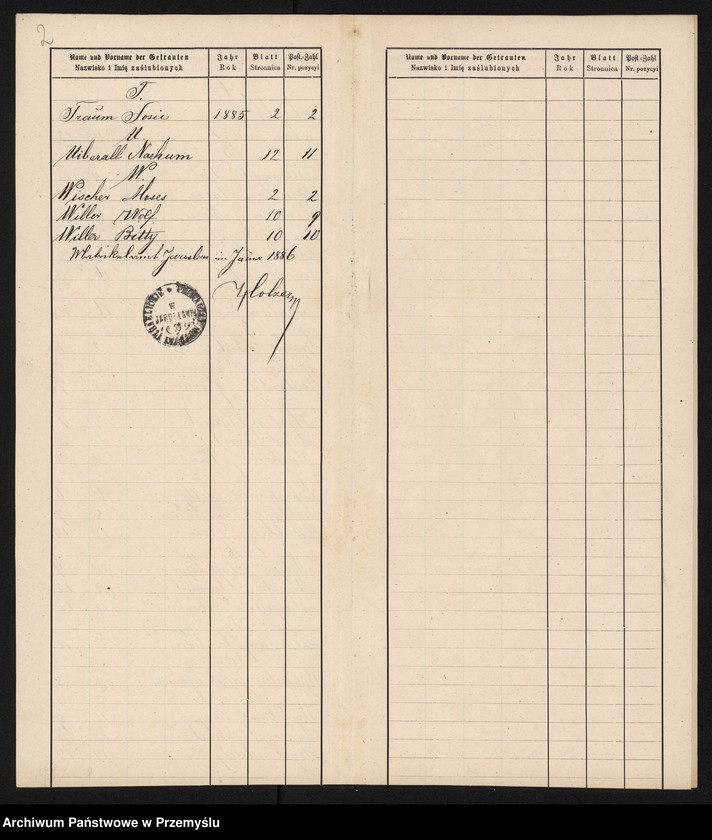 2
Name und Vorname der Getrauten Jahr Blatt Post.-Zahl
Nazwisko i Imię zaślubionych Rok Stronnica Nr. pozycyi
T.
Traum Josie 1885 2 2
U.
Uiberall Nachum 12 11
W
Wischer Moses 2 2
Willer Wolf 10 9
Willer Betty 10 10
Matrikelamt Jaroslau im Jäner 1886
W
JAROSŁAWIU
Name und Vorname der Getrauten Jahr Blatt Post.-Zahl
Nazwisko i Imię zaślubionych Rok Stronnica Nr. pozycyi
Archiwum Państwowe w Przemyślu